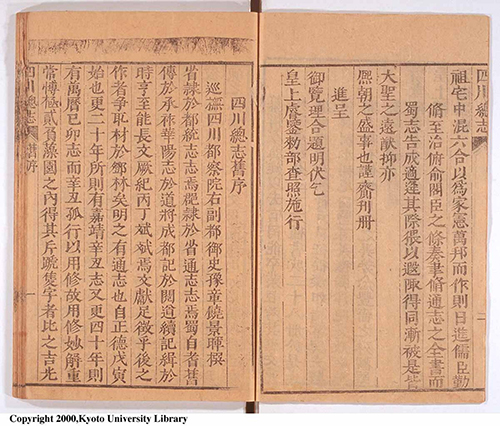 四川總志
祖宅中混六合以爲家憲萬邦而作則日進儒臣勤
脩至治俯俞閣臣之條奏聿脩通志之全書而
蜀志告成適逢其際猥以遐陬得同漸被是皆
大聖之遠猷抑亦
熙朝之盛事也謹齎刋冊
進呈
御覽理合題明伏乞
皇上睿鑒勑部查照施行
四川總志舊序
巡撫四川都察院右副都御史豫章饒景暉撰
省隷於都統志志焉麗隷於省通志志焉蜀自耆舊
傳於承祚華陽志於道將成都記於闗道續記緝於
時亨至能長文厥紀丙丁斌斌焉文獻足徴乎後之
作者爭取材於鄧林矣明之有通志也自正德戊寅
始也更二十年所則有嘉靖辛丑志又更四十年則
有萬曆己卯志而辛丑孤行以用修故用修妙解重
常愽極貳負藻園之内得其斥踬隻字者比之吉光
四川總志
舊序
一
Copyright 2000,Kyoto University Library